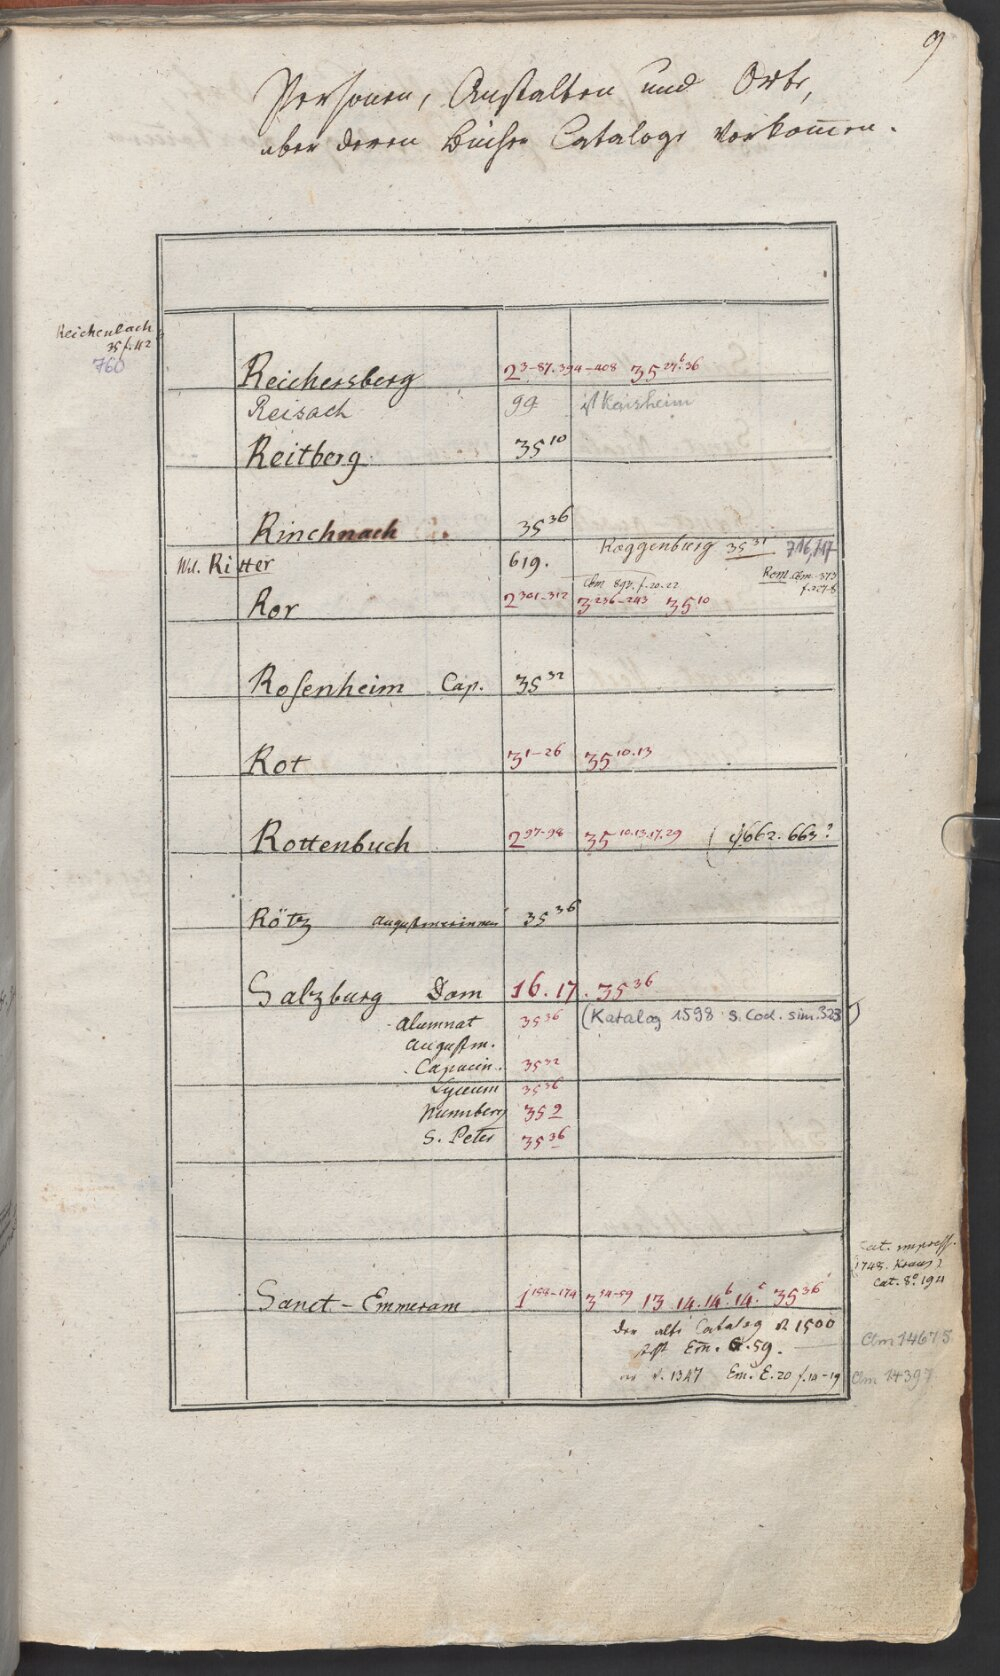 9
Personen, Anstalten und Orte,
über deren Bücher Cataloge vorkom̄en.
Reichenbach
35 f. 42
760
Reichersberg 2 3-87. 394-408 35 27b. 36
Reisach 99 ist Kaisheim
Reitberg 35 10
Rinchnach 35 36
Roggenburg 35 31 716,717
Wil. Ritter 619.
Rom. Cbm. 373
f. 227-8
Cbm 892. f. 20. 22
Ror 2 301-312 3 236-243 35 10
Rosenheim Cap. 35 32
Rot 3 1-26 35 10.13
Rottenbuch 2 97-98 35 10.13.17.29 (cf 662. 663?
Rötz Augustinerinnen 35 36
Salzburg Dom 16. 17. 35 36
Alumnat 35 36 (Katalog 1598 s. Cod. sim. 323)
Augustin.
Capucin. 35 32
Lyceum 35 36
Nunnberg 35 2
S. Peter 35 36
Cat. impress.
(1748. Kraus)
Cat. 8º. 194
Sanct-Emmeram 1 158-174 3 54-59 13 14. 14b 14c 35 36
Der alte Catalog v. 1500
ist Em. G. 59. Clm 14675
v. 1347 Em. E. 20 f. 10-19 Clm 14397